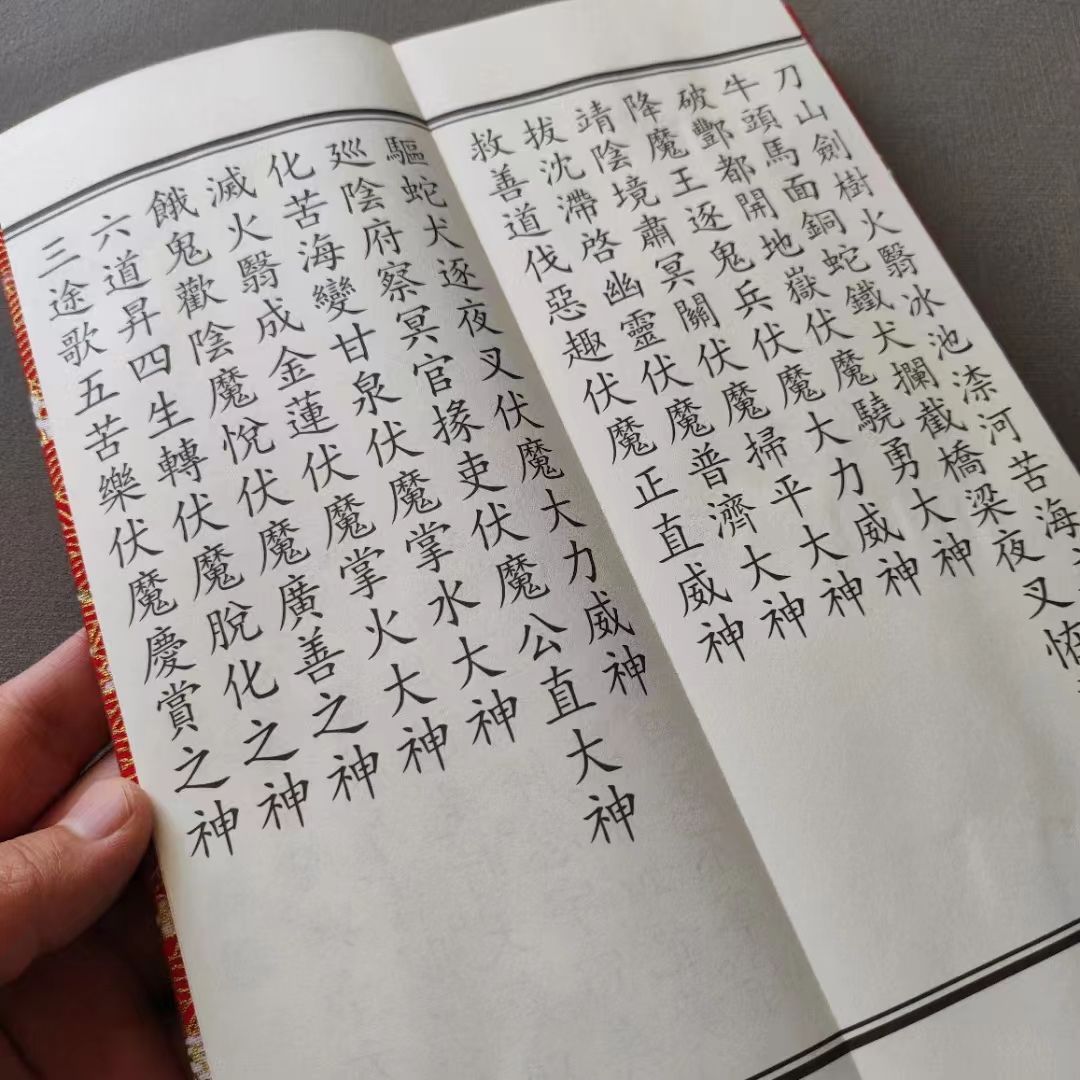 刀山劍樹火翳冰池渿河苦海
牛頭馬面銅蛇鐵犬攔截橋梁夜叉
破酆都開地嶽伏魔驍勇大神
降魔王逐鬼兵伏魔大力威神
靖陰境肅冥關伏魔掃平大神
拔沈滯啓幽靈伏魔普濟大神
救善道伐惡趣伏魔正直威神
驅蛇犬逐夜叉伏魔大力威神
廵陰府察冥官掾吏伏魔公直大神
化苦海變甘泉伏魔掌水大神
滅火翳成金蓮伏魔掌火大神
餓鬼歡陰魔悅伏魔廣善之神
六道昇四生轉伏魔脫化之神
三途歌五苦樂伏魔慶賞之神